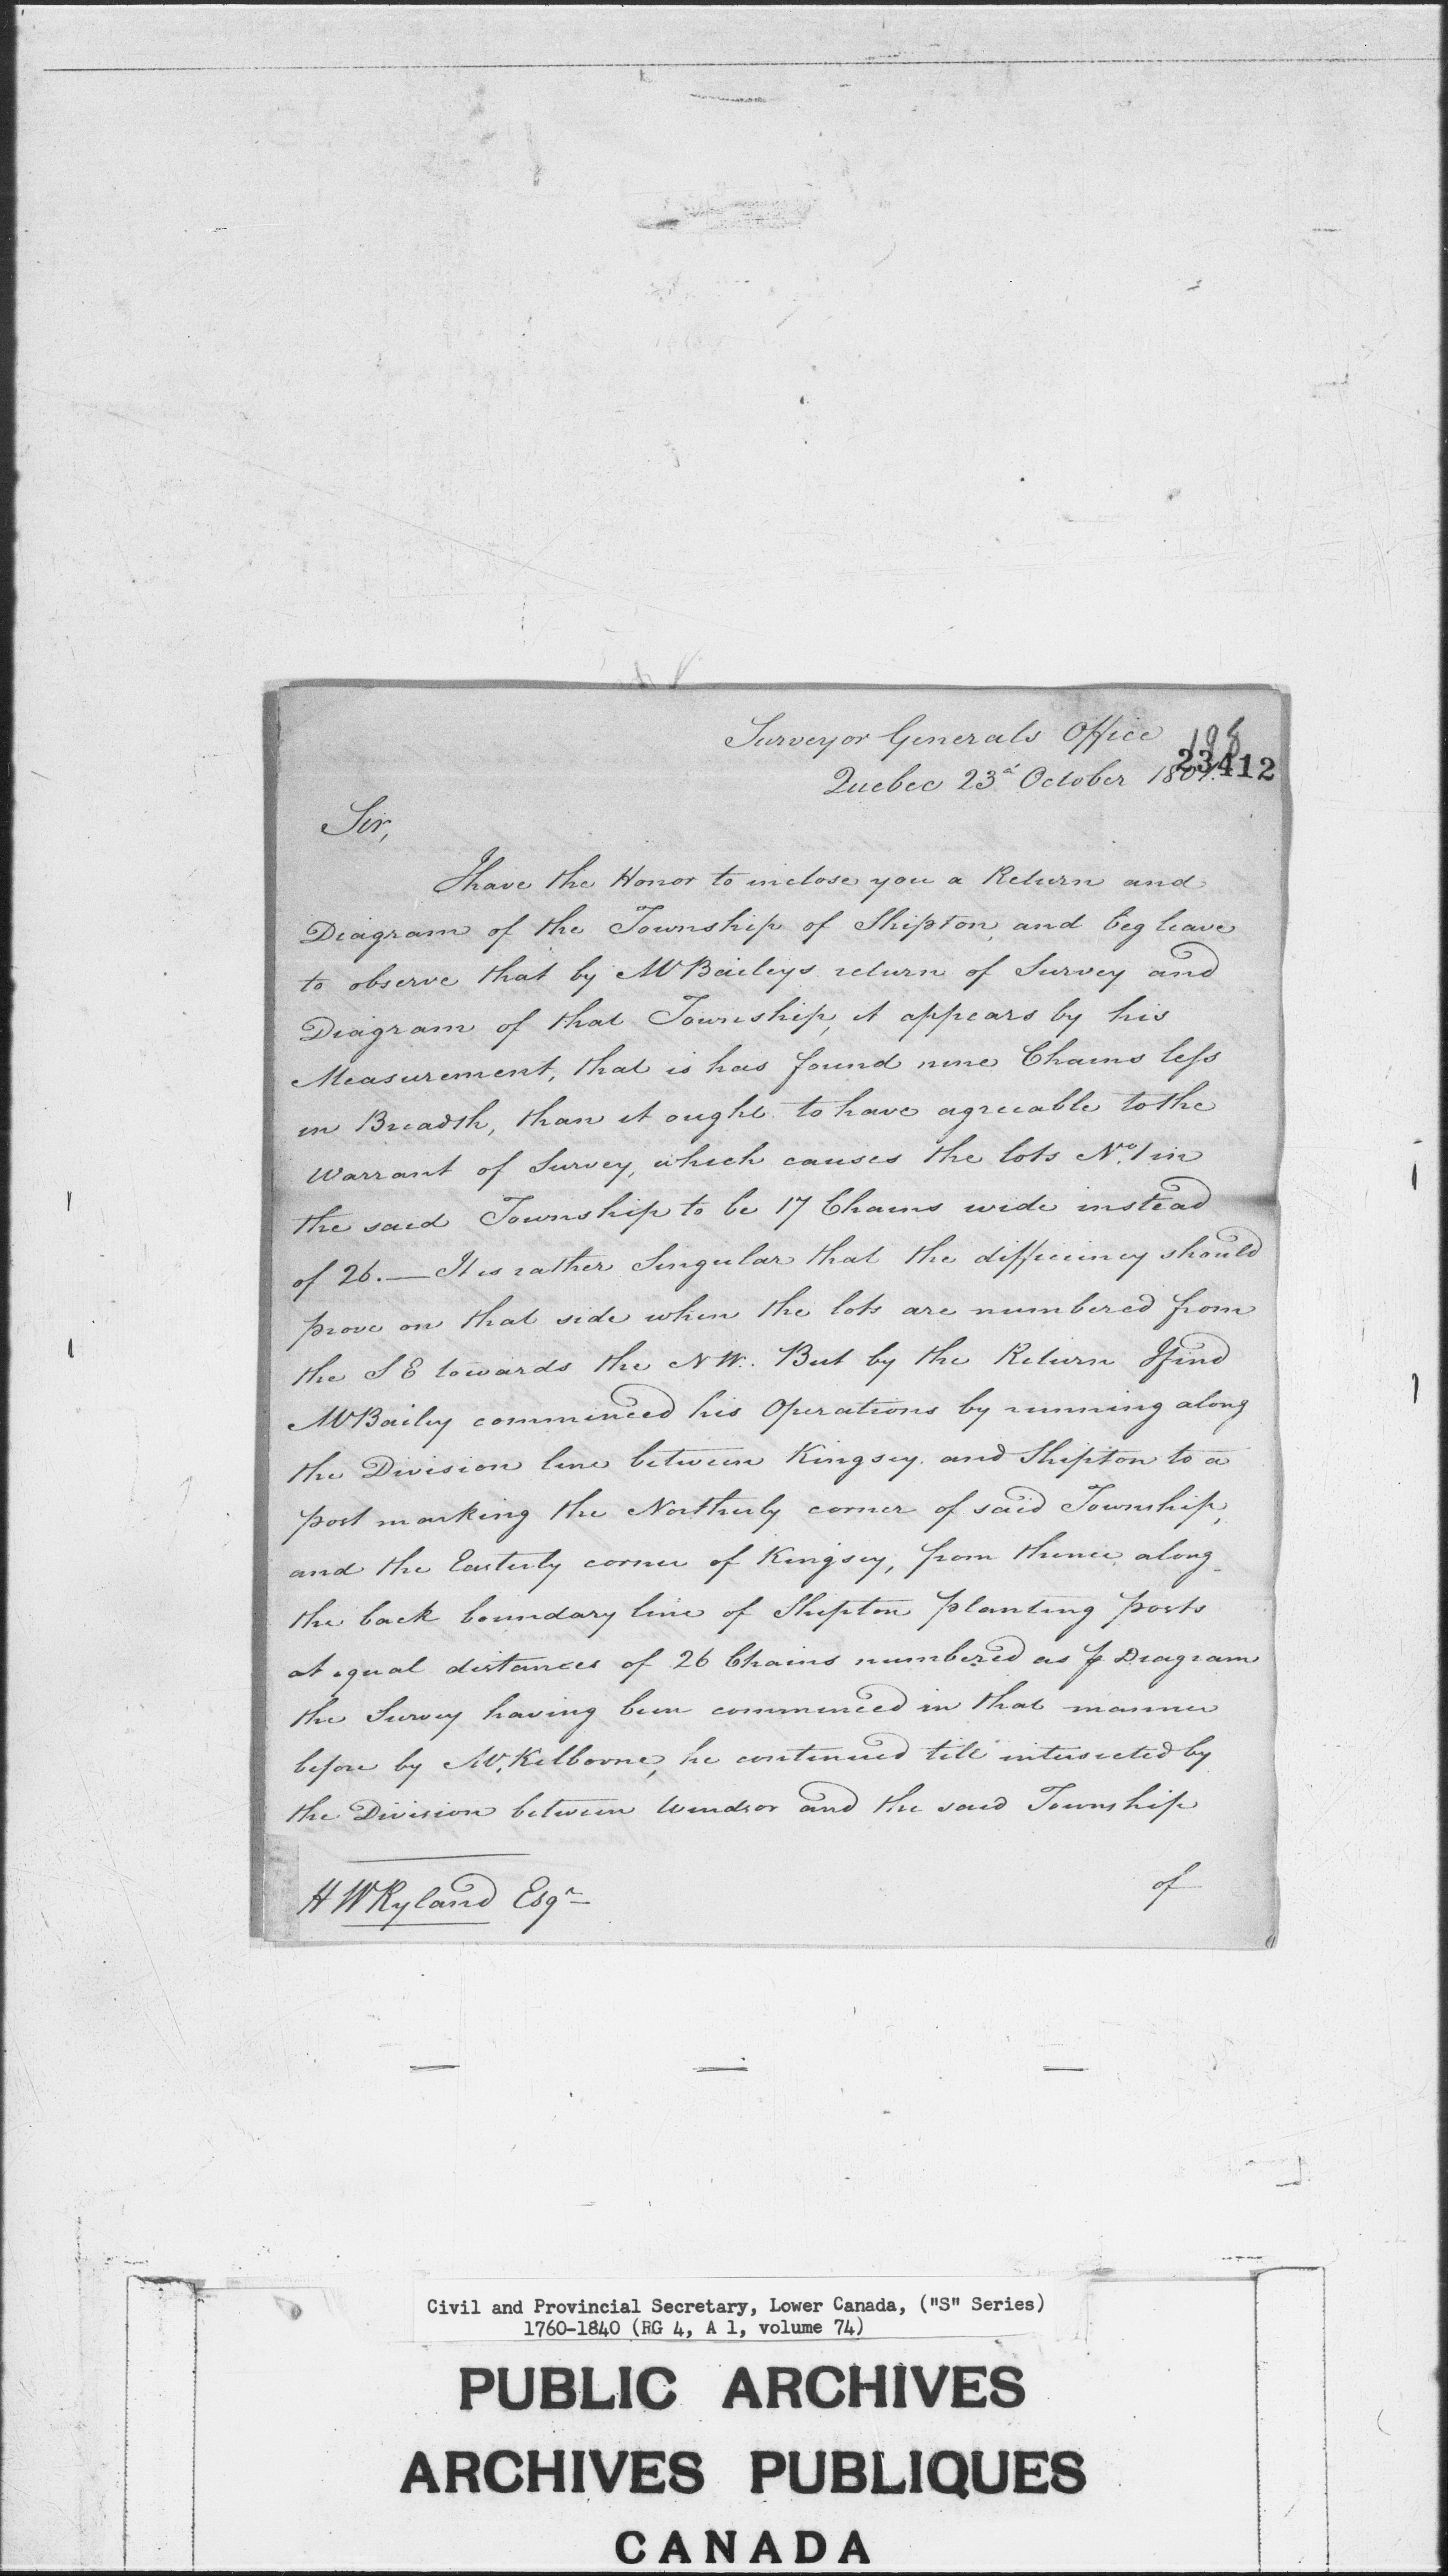 Surveyor Generals Office
198
23412
Quebec 23d October 1801.
Sir,
I have the Honor to inclose you a Return and
Diagram of the Township of Shipton, and beg leave
to observe that by Mr Baileys return of Survey and
Diagram of that Township, it appears by his
Measurement, that is has found nine Chains less
in Breadth, than it ought to have agreeable to the
Warrant of Survey, which causes the lots No. 1 in
the said Township to be 17 Chains wide instead
of 26. — It is rather Singular that the difficiency should
prove on that side when the lots are numbered from
the S E towards the N W. But by the Return I find
Mr Bailey commenced his Operations by running along
the Division line between Kingsey and Shipton to a
post marking the Northerly corner of said Township,
and the Easterly corner of Kingsey, from thence along
the back boundary line of Shipton planting posts
at equal distances of 26 Chains numbered as ⅌ Diagram
the Survey having been commenced in that manner
before by Mr. Kilborne, he continued till intersected by
the Division between Windsor and the said Township
of
H W Ryland Esqr
Civil and Provincial Secretary, Lower Canada, ("S" Series)
1760-1840 (RG 4, A 1, volume 74)
PUBLIC ARCHIVES
ARCHIVES PUBLIQUES
CANADA